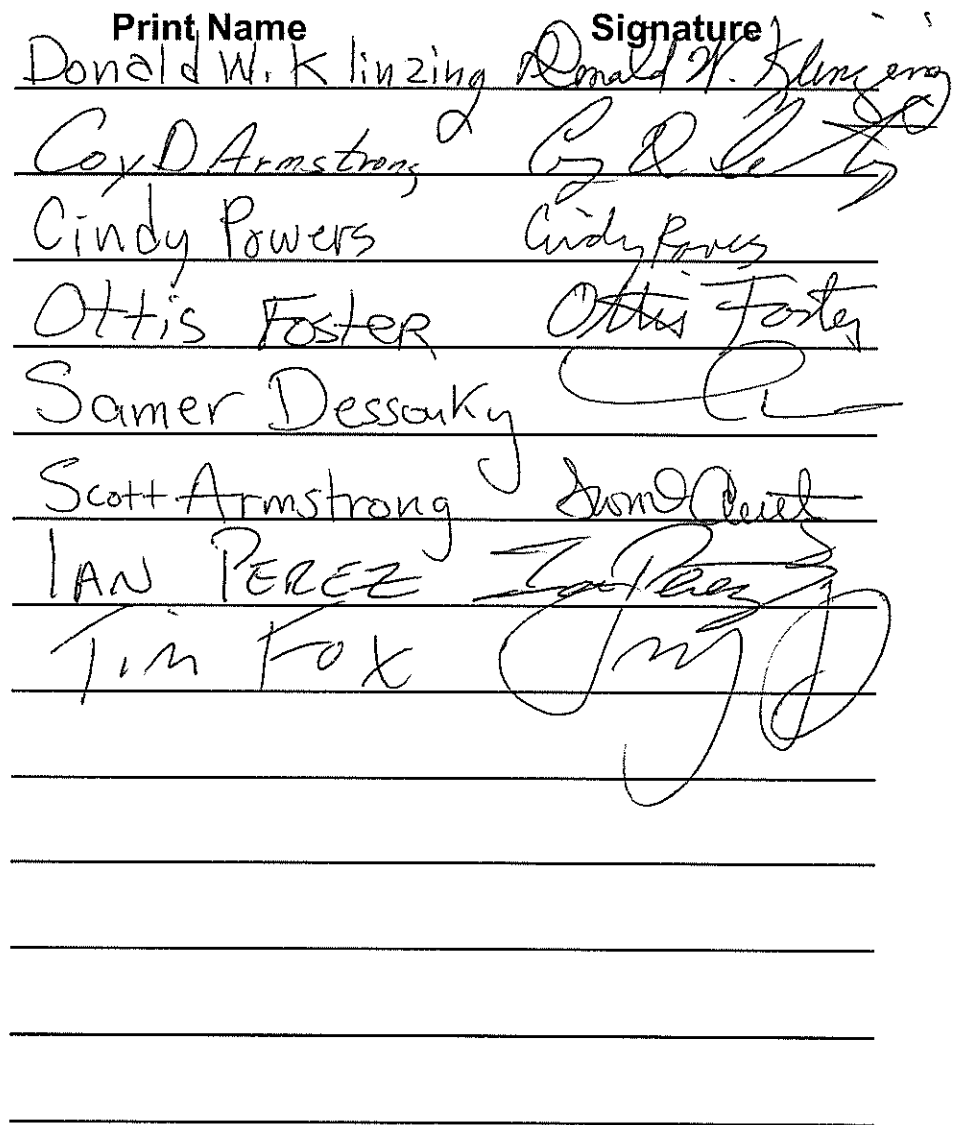 Print Name Signature
Donald W. Klinzing Donald W. Klinzing
Coy D Armstrong
Cindy Powers Cindy Powers
Ottis Foster Ottis Foster
Samer Dessouky
Scott Armstrong
IAN PEREZ Ian Perez
Tim Fox